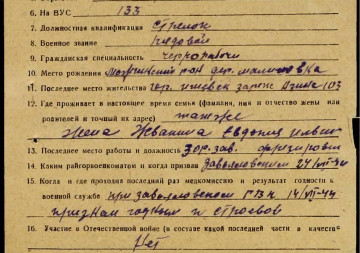 6. На ВУС 133
7. Должностная квалификация Стрелок
8. Военное звание Рядовой
9. Гражданская специальность Чернорабочий
10. Место рождения р-он дер. Малиновка
11. Последнее место жительства гор. Ижевск
12. Где проживает в настоящее время семья (фамилия, имя и отчество жены или
родителей и точный их адрес) там же
Жена Евдокия
13. Последнее место работы и должность
14. Каким райгорвоенкоматом и когда призван Завьяловским 24/VII-44
15. Когда и где проходил последний раз медкомиссию и результат годности к
военной службе при Завьяловском РВК 14/VII-44
признан годным к строевой
16. Участие в Отечественной войне (в составе какой последней части и в качестве
Нет